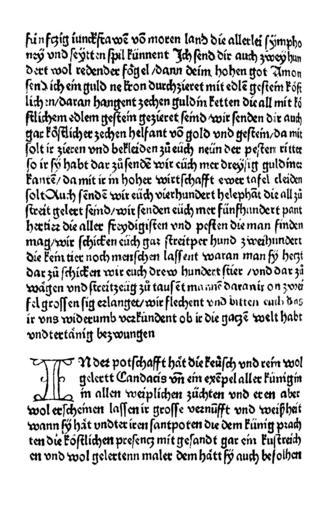 fünfczig iunckfrawē vō moren land die allerlei sympho
ney vnd seytten spil künnent Jch send dir auch zwey hun
dert wol redender fögel/dann deim hohen got Amon
send ich ein guld ne kron durchzieret mit edlē gestein köst
lichen/daran hangent zechen guldin ketten die all mit kö
stlichem edlem gestein gezieret seind/wir senden dir auch
gar köstlicher zechen helfant vō gold vnd gestein/da mit
solt ir zieren vnd bekleiden zů euch neün der pesten ritter
so ir sy habt dar zů sendē wir euch mer dreyssig guldiner
kantē/da mit ir in hoher wirtschafft ewer tafel cleiden
solt Auch sendē wir euch vierhundert helephāt die all zů
streit gelert seind/wir senden euch mer fünfhundert pant
hertier die aller freydigisten vnd pesten die man finden
mag/wir schicken eüch gar streitper hund zweihundert
die kein tier noch menschen lassent waran man sy hetzt
dar zů schicken wir euch drew hundert stier /vnd dar zů
wägen vnd streitzeüg zů tausēt mannē daran ir on zwei
fel grossen sig erlanget/wir flechent vnd bitten euch das
ir vns widerumb verkündent ob ir die gantzē welt habt
vndtertänig bezwungen
IN der potschafft hāt die keüsch vnd rein wol
gelertt Candacis vō ein exēpel aller künigin
in allen weiplichen züchten vnd eren aber
wol erscheinen lassen ir grosse vernüfft vnd weißheit
wann sy hāt vndter iren santpoten die dem künig prach
ten die köstlichen presencz mit gesandt gar ein kustreich
en vnd wol gelertenn maler dem hātt sy auch befolhen